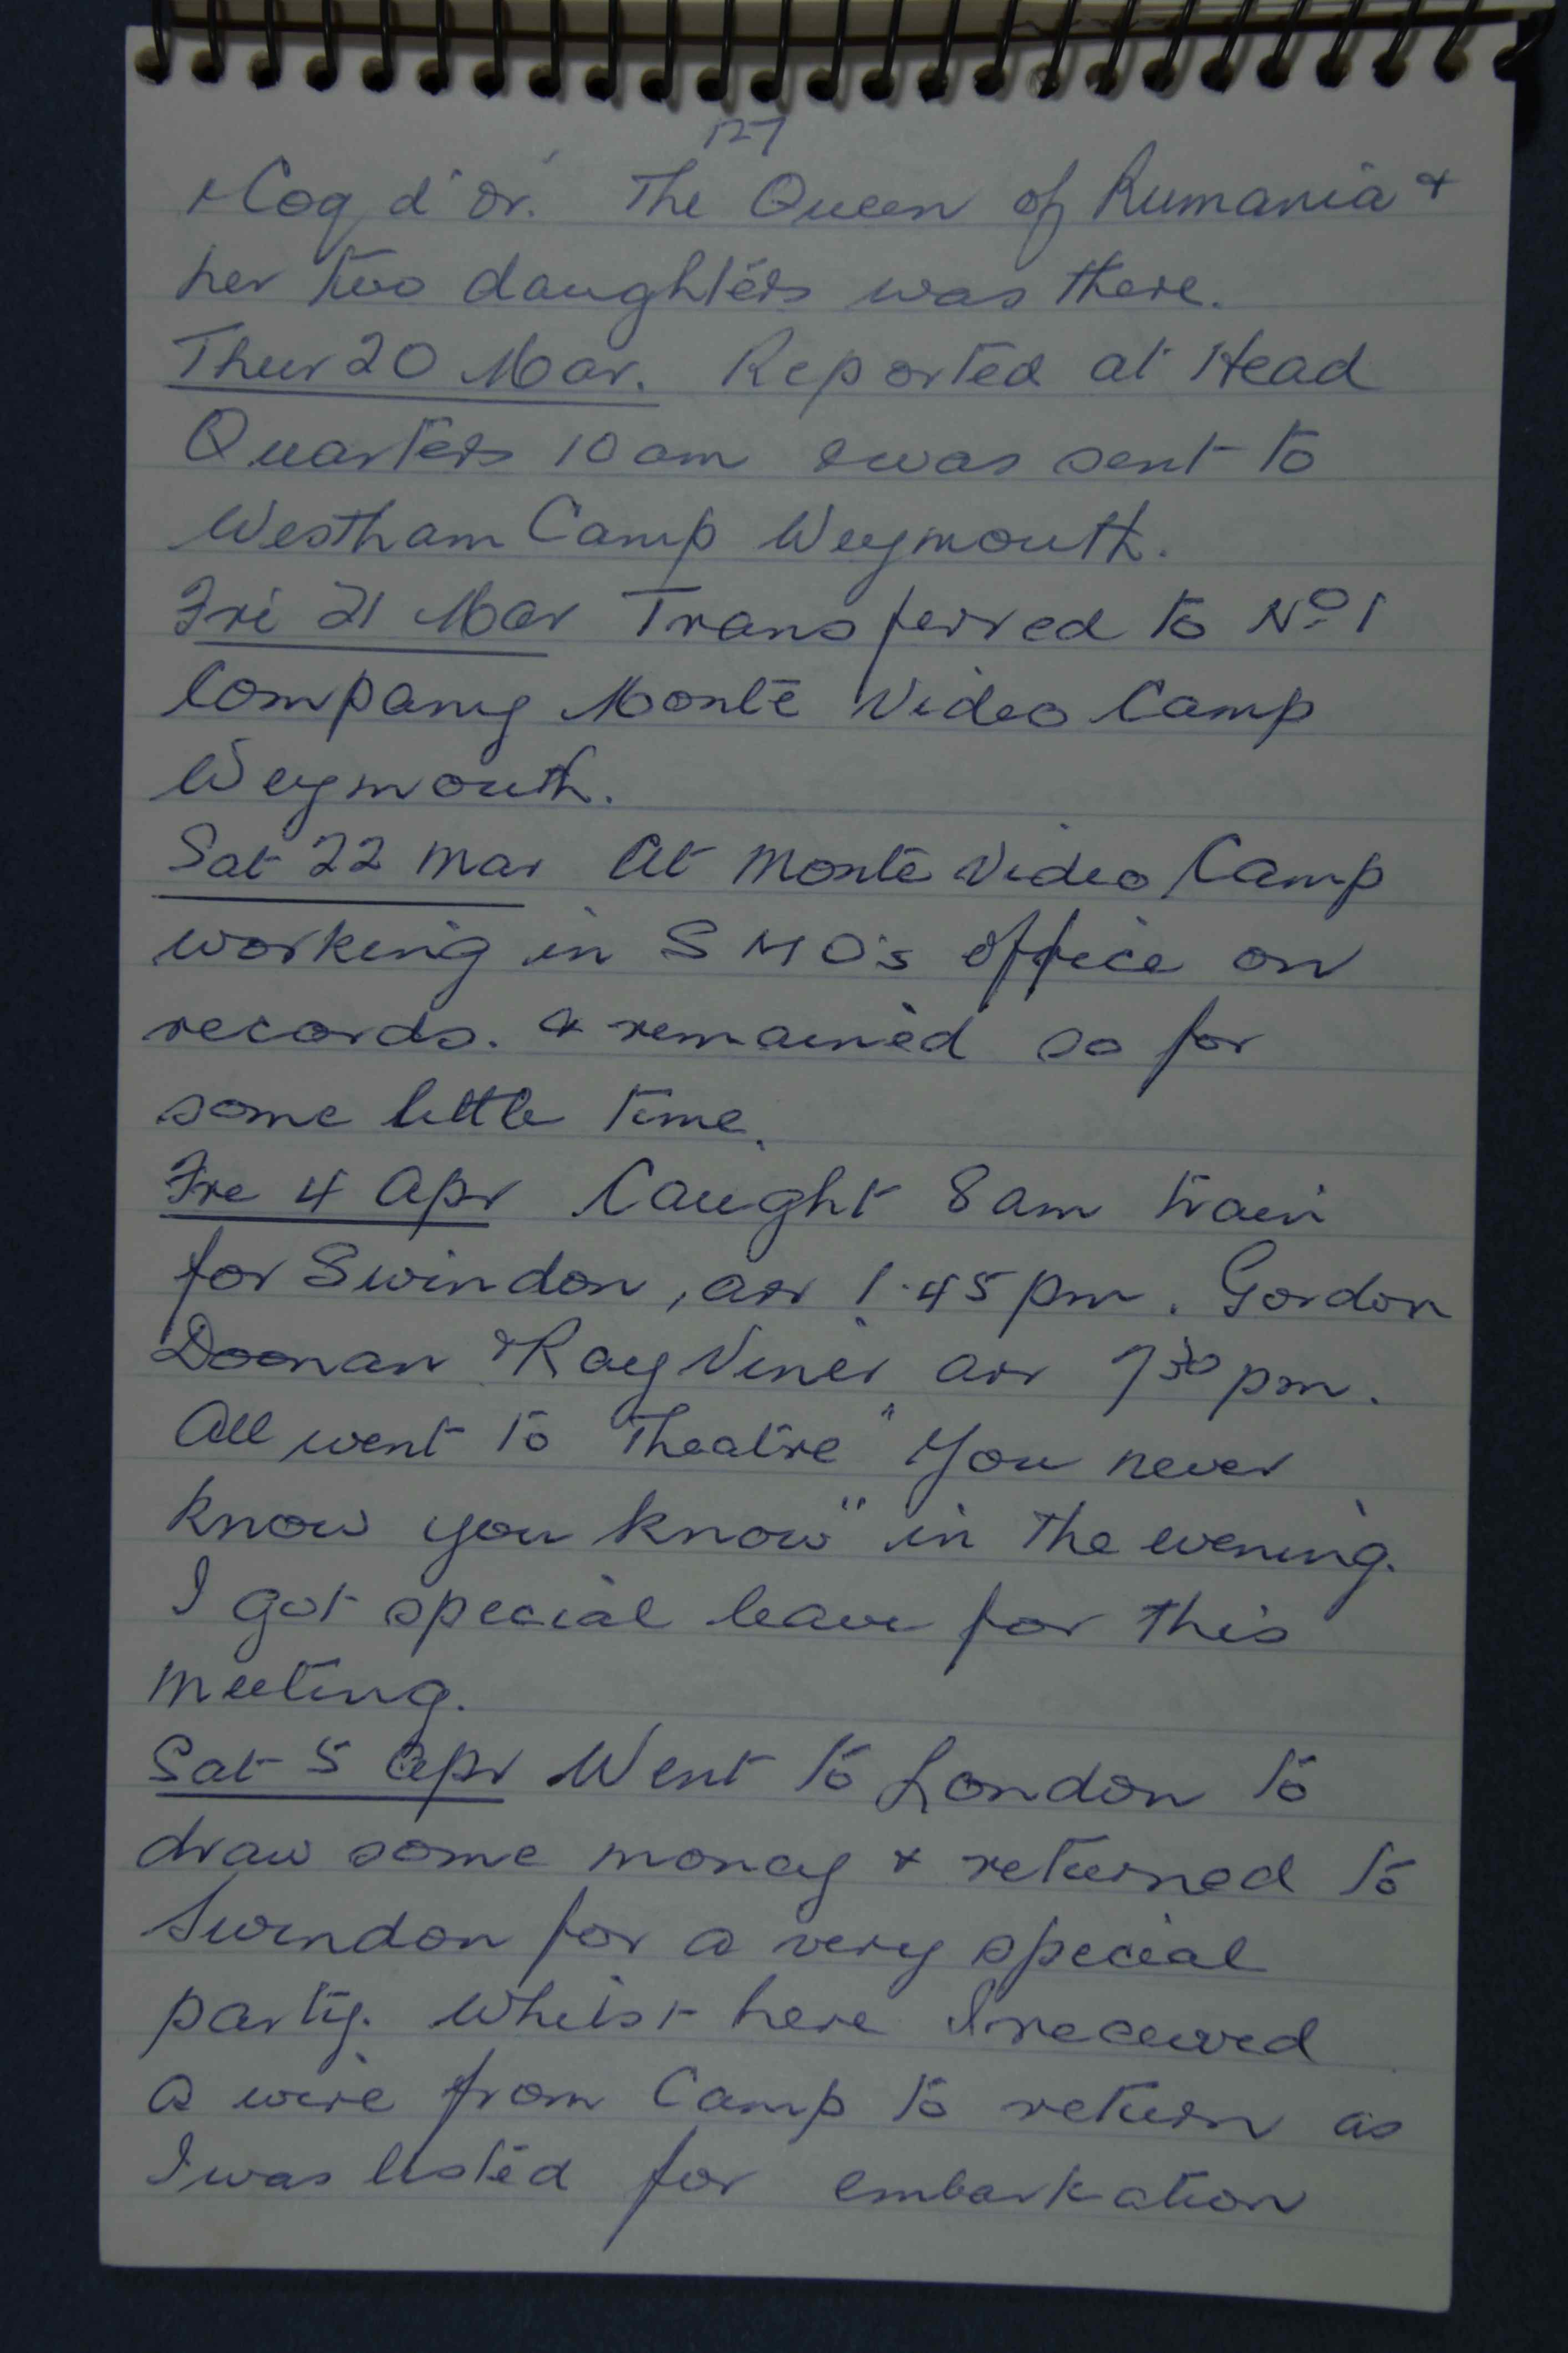 127
& Coq d'or. The Queen of Rumania &
her two daughters was there.
Thur 20 Mar. Reported at Head
Quarters 10 am & was sent to
Westham Camp Weymouth.
Fri 21 Mar Transferred to No 1
Company Monte Video Camp
Weymouth.
Sat 22 Mar At Monte Video Camp
working in S M O's office on
records. & remained so for
some little time.
Fri 4 Apr Caught 8 am train
for Swindon, arr 1.45 pm. Gordon
Doonan & Ray Viner arr 7 30 pm.
All went to Theatre "You never
know you know" in the evening.
I got special leave for this
meeting.
Sat 5 Apr Went to London to
draw some money & returned to
Swindon for a very special
party. Whilst here I received
a wire from Camp to return as
I was listed for embarkation